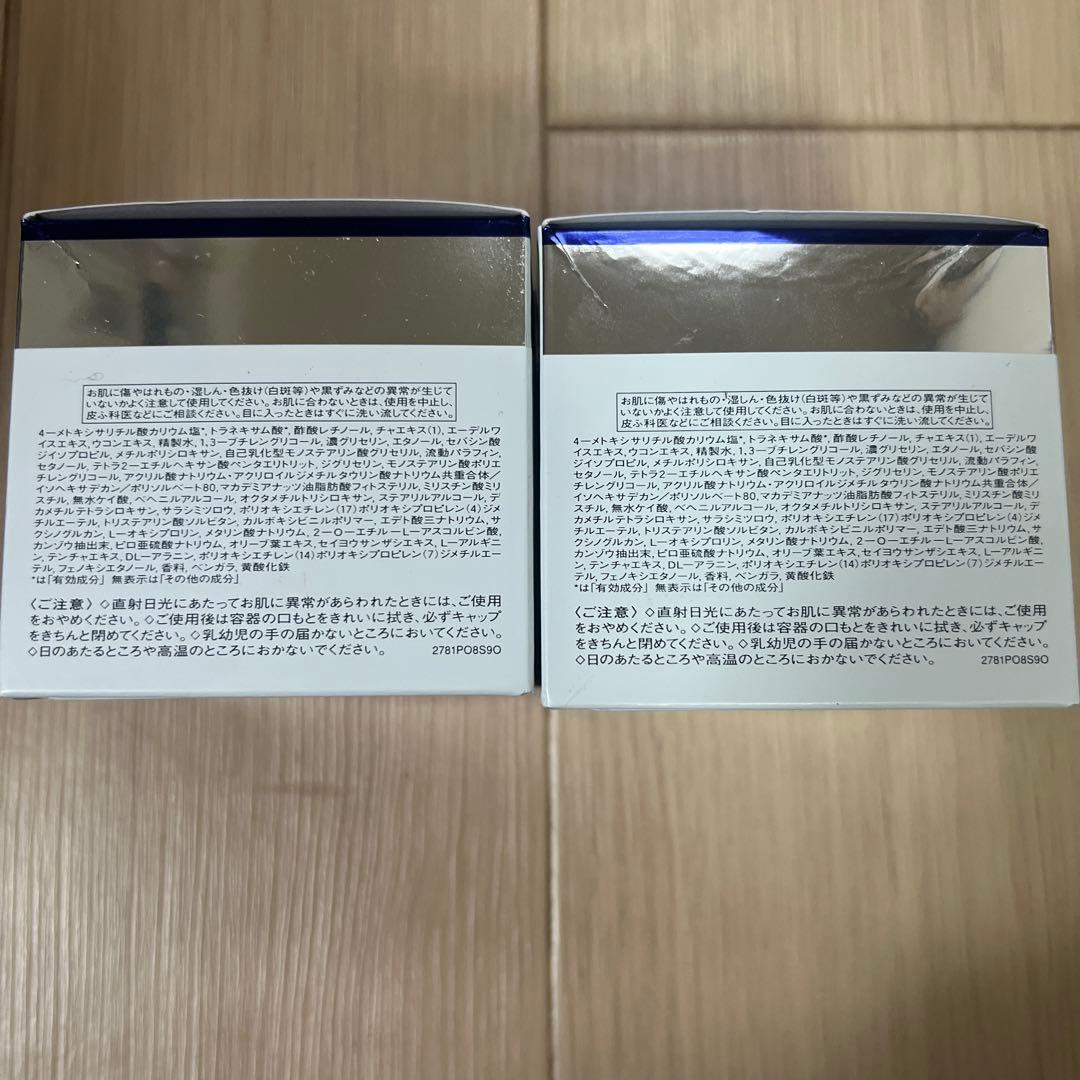 お肌に傷やはれもの・湿しん・色抜け(白斑等)や黒ずみなどの異常が生じて
いないかよく注意して使用してください。お肌に合わないときは、使用を中止し、
皮ふ科医などにご相談ください。目に入ったときはすぐに洗い流してください。
4ーメトキシサリチル酸カリウム塩*, トラネキサム酸*, 酢酸レチノール, チャエキス(1), エーデルワ
イスエキス, ウコンエキス, 精製水, 1,3ーブチレングリコール, 濃グリセリン, エタノール, セバシン酸
ジイソプロピル, メチルポリシロキサン, 自己乳化型モノステアリン酸グリセリル, 流動パラフィン,
セタノール, テトラ2ーエチルヘキサン酸ペンタエリトリット, ジグリセリン, モノステアリン酸ポリエ
チレングリコール, アクリル酸ナトリウム・アクリロイルジメチルタウリン酸ナトリウム共重合体/
イソヘキサデカン/ポリソルベート80, マカデミアナッツ油脂肪酸フィトステリル, ミリスチン酸ミリ
スチル, 無水ケイ酸, ベヘニルアルコール, オクタメチルトリシロキサン, ステアリルアルコール, デ
カメチルテトラシロキサン, サラシミツロウ, ポリオキシエチレン(17)ポリオキシプロピレン(4)ジメ
チルエーテル, トリステアリン酸ソルビタン, カルボキシビニルポリマー, エデト酸三ナトリウム, サ
クシノグルカン, Lーオキシプロリン, メタリン酸ナトリウム, 2ーOーエチルーLーアスコルビン酸,
カンゾウ抽出末, ピロ亜硫酸ナトリウム, オリーブ葉エキス, セイヨウサンザシエキス, Lーアルギニ
ン, テンチャエキス, DLーアラニン, ポリオキシエチレン(14)ポリオキシプロピレン(7)ジメチルエー
テル, フェノキシエタノール, 香料, ベンガラ, 黄酸化鉄
*は「有効成分」 無表示は「その他の成分」
〈ご注意〉◇直射日光にあたってお肌に異常があらわれたときには、ご使用
をおやめください。◇ご使用後は容器の口もとをきれいに拭き、必ずキャップ
をきちんと閉めてください。◇乳幼児の手の届かないところにおいてください。
◇日のあたるところや高温のところにおかないでください。 2781PO8S9O
お肌に傷やはれもの・湿しん・色抜け(白斑等)や黒ずみなどの異常が生じて
いないかよく注意して使用してください。お肌に合わないときは、使用を中止し、
皮ふ科医などにご相談ください。目に入ったときはすぐに洗い流してください。
4ーメトキシサリチル酸カリウム塩*, トラネキサム酸*, 酢酸レチノール, チャエキス(1), エーデルワ
イスエキス, ウコンエキス, 精製水, 1,3ーブチレングリコール, 濃グリセリン, エタノール, セバシン酸
ジイソプロピル, メチルポリシロキサン, 自己乳化型モノステアリン酸グリセリル, 流動パラフィン,
セタノール, テトラ2ーエチルヘキサン酸ペンタエリトリット, ジグリセリン, モノステアリン酸ポリエ
チレングリコール, アクリル酸ナトリウム・アクリロイルジメチルタウリン酸ナトリウム共重合体/
イソヘキサデカン/ポリソルベート80, マカデミアナッツ油脂肪酸フィトステリル, ミリスチン酸ミリ
スチル, 無水ケイ酸, ベヘニルアルコール, オクタメチルトリシロキサン, ステアリルアルコール, デ
カメチルテトラシロキサン, サラシミツロウ, ポリオキシエチレン(17)ポリオキシプロピレン(4)ジメ
チルエーテル, トリステアリン酸ソルビタン, カルボキシビニルポリマー, エデト酸三ナトリウム, サ
クシノグルカン, Lーオキシプロリン, メタリン酸ナトリウム, 2ーOーエチルーLーアスコルビン酸,
カンゾウ抽出末, ピロ亜硫酸ナトリウム, オリーブ葉エキス, セイヨウサンザシエキス, Lーアルギニ
ン, テンチャエキス, DLーアラニン, ポリオキシエチレン(14)ポリオキシプロピレン(7)ジメチルエー
テル, フェノキシエタノール, 香料, ベンガラ, 黄酸化鉄
*は「有効成分」 無表示は「その他の成分」
〈ご注意〉◇直射日光にあたってお肌に異常があらわれたときには、ご使用
をおやめください。◇ご使用後は容器の口もとをきれいに拭き、必ずキャップ
をきちんと閉めてください。◇乳幼児の手の届かないところにおいてください。
◇日のあたるところや高温のところにおかないでください。 2781PO8S9O